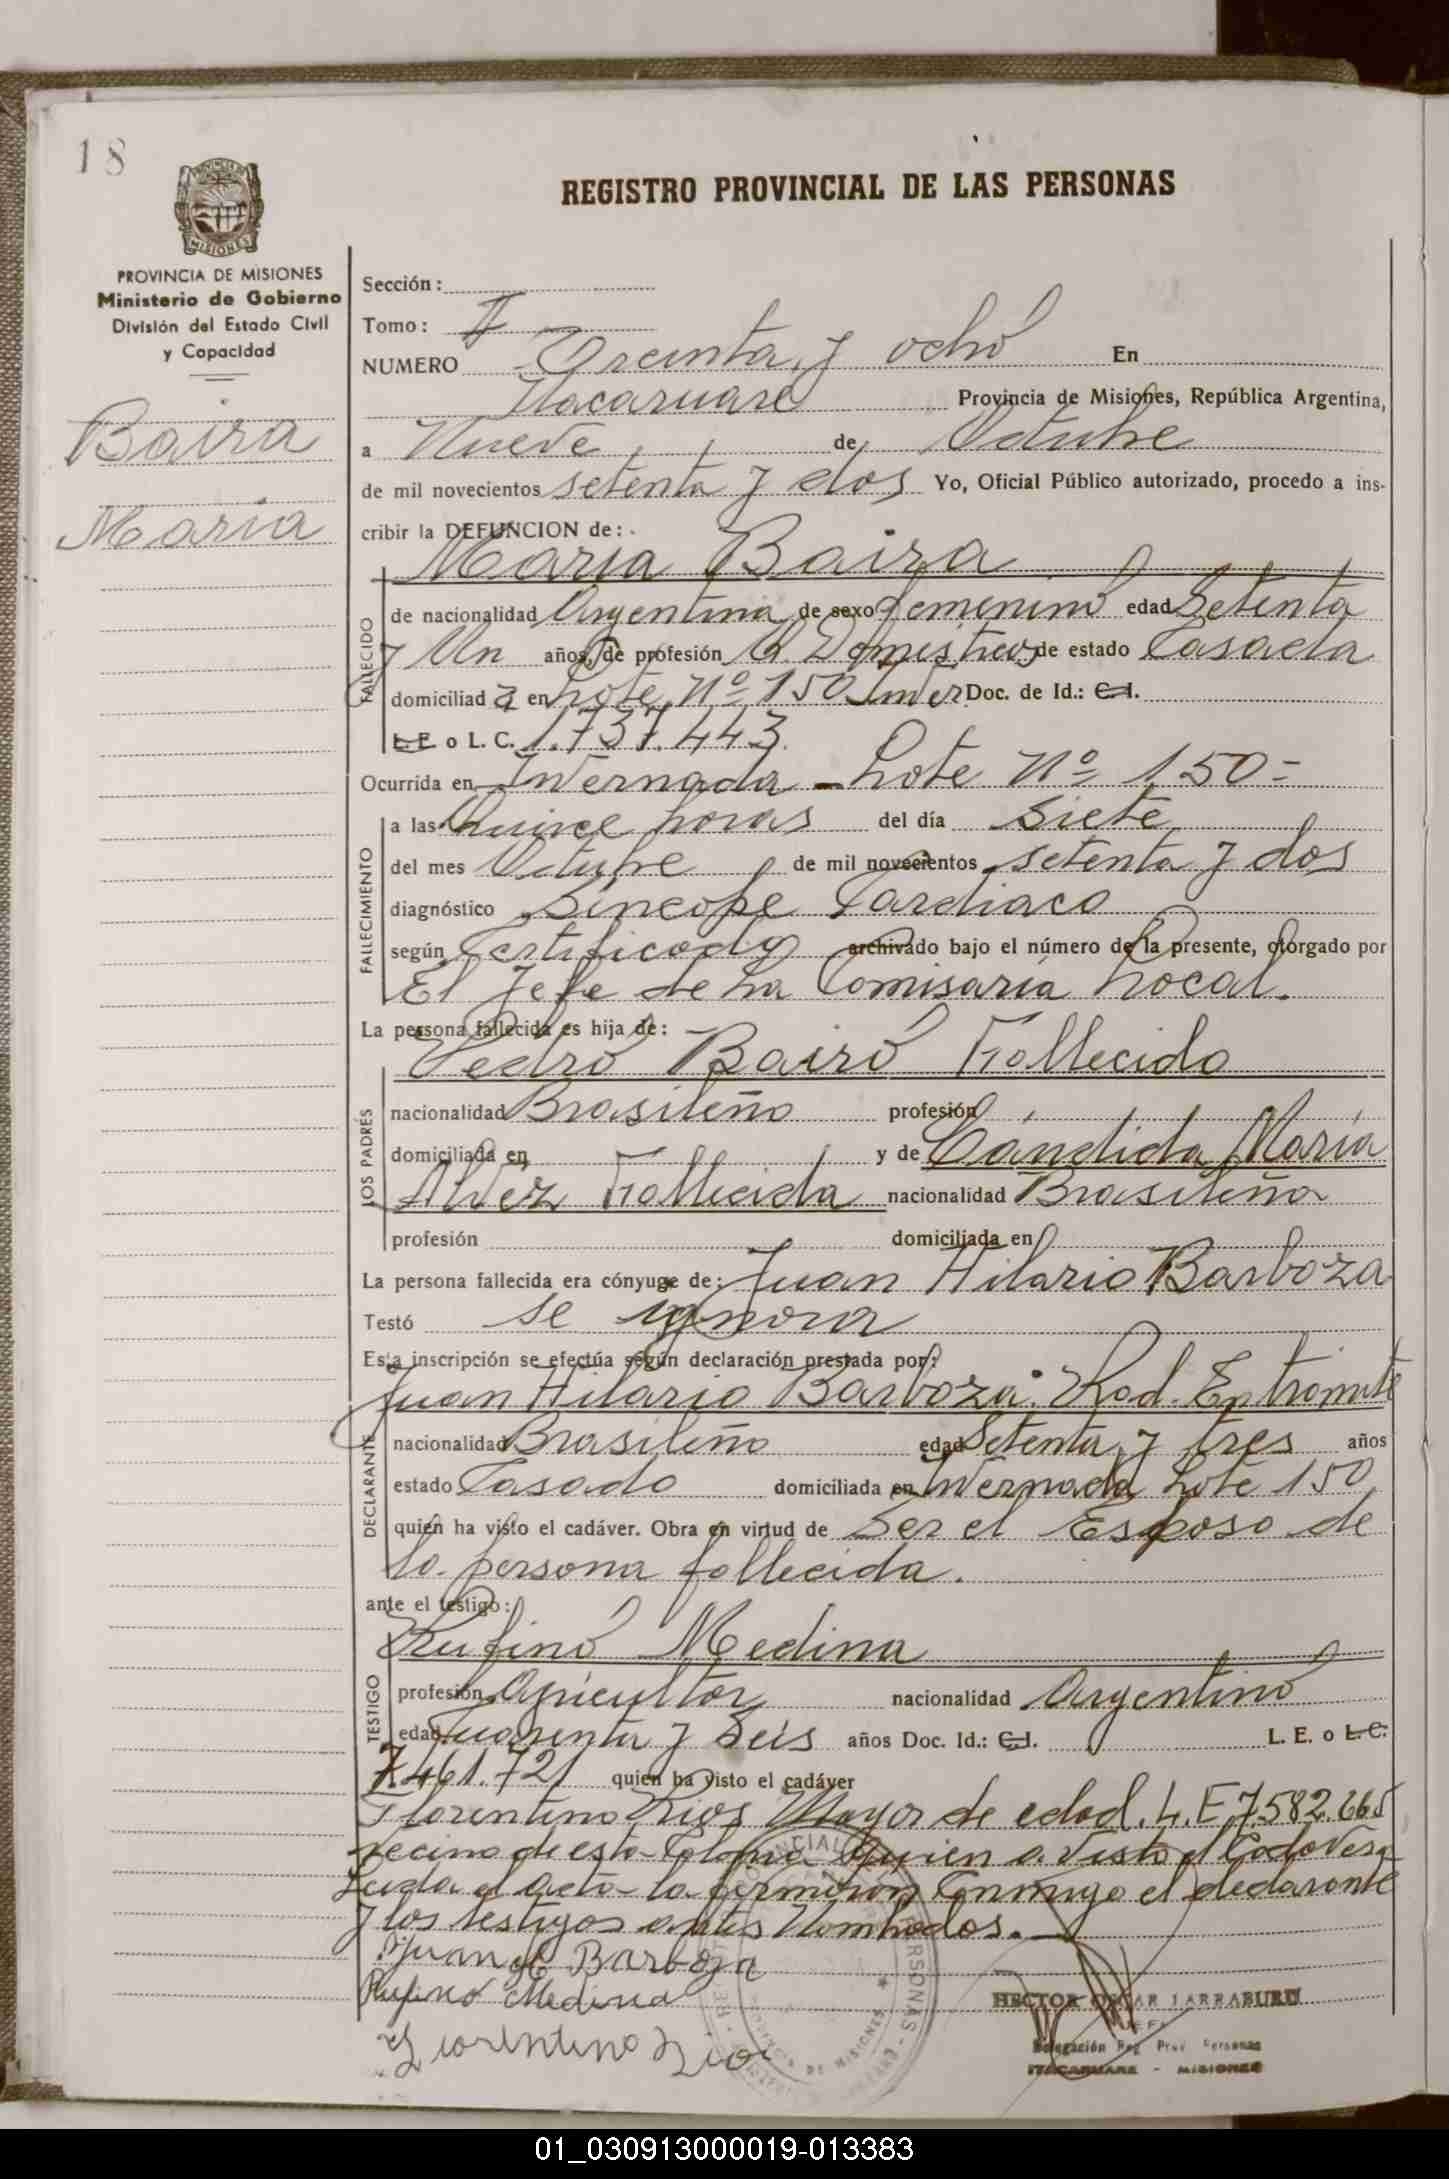 18
PROVINCIA DE MISIONES
Ministerio de Gobierno
División del Estado Civil
y Capacidad
Baira
Maria
REGISTRO PROVINCIAL DE LAS PERSONAS
Sección:
Tomo: I
NUMERO Treinta y ocho En
Itacaruare Provincia de Misiones, República Argentina,
a Nueve de Octubre
de mil novecientos setenta y dos Yo, Oficial Público autorizado, procedo a ins-
cribir la DEFUNCION de:
Maria Baira
FALLECIDO
de nacionalidad Argentina de sexo femenino edad Setenta
y Un años, de profesión Q. Domesticos de estado Casada
domiciliad a en Lote Nº 150 Inver Doc. de Id.: C.I.
L.E. o L. C. 1.737.443.
Ocurrida en Invernada - Lote Nº 150=
FALLECIMIENTO
a las Quince horas del día siete
del mes Octubre de mil novecientos setenta y dos
diagnóstico Sincope Cardiaco
según Certificado archivado bajo el número de la presente, otorgado por
El Jefe de La Comisaría Local.
La persona fallecida es hija de:
Pedro Bairo Fallecido
LOS PADRES
nacionalidad Brasileño profesión
domiciliada en y de Cándida María
Alvez Fallecida nacionalidad Brasileña
profesión domiciliada en
La persona fallecida era cónyuge de: Juan Hilario Barboza
Testó se ignora
Esta inscripción se efectúa según declaración prestada por:
Juan Hilario Barboza.
DECLARANTE
nacionalidad Brasileño edad Setenta y tres años
estado Casado domiciliada en Invernada Lote 150
quien ha visto el cadáver. Obra en virtud de Ser el Esposo de
la persona fallecida.
ante el testigo:
Rufino Medina
TESTIGO
profesión Agricultor nacionalidad Argentino
edad Cuarenta y Seis años Doc. Id.: C.I. L. E. o L.C.
7.461.721 quien ha visto el cadáver
Florentino Rios Mayor de edad. L.E. 7.582.665
vecino de esta Colonia quien a visto el Cadaver
Leida el acta la firmaron Conmigo el declarante
y los testigos antes Nombrados.
Juan H Barboza
Rufino Medina
Florentino Rios
HECTOR OSCAR LARRABURU
JEFE
Delegación Reg. Prov. Personas
ITACARUARE - MISIONES
01_030913000019-013383